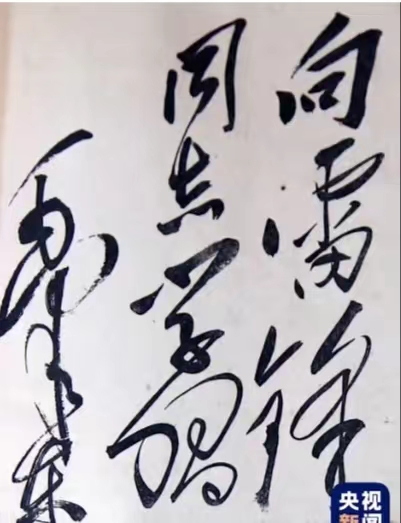 向雷锋
同志学习
毛泽东
央视
新闻